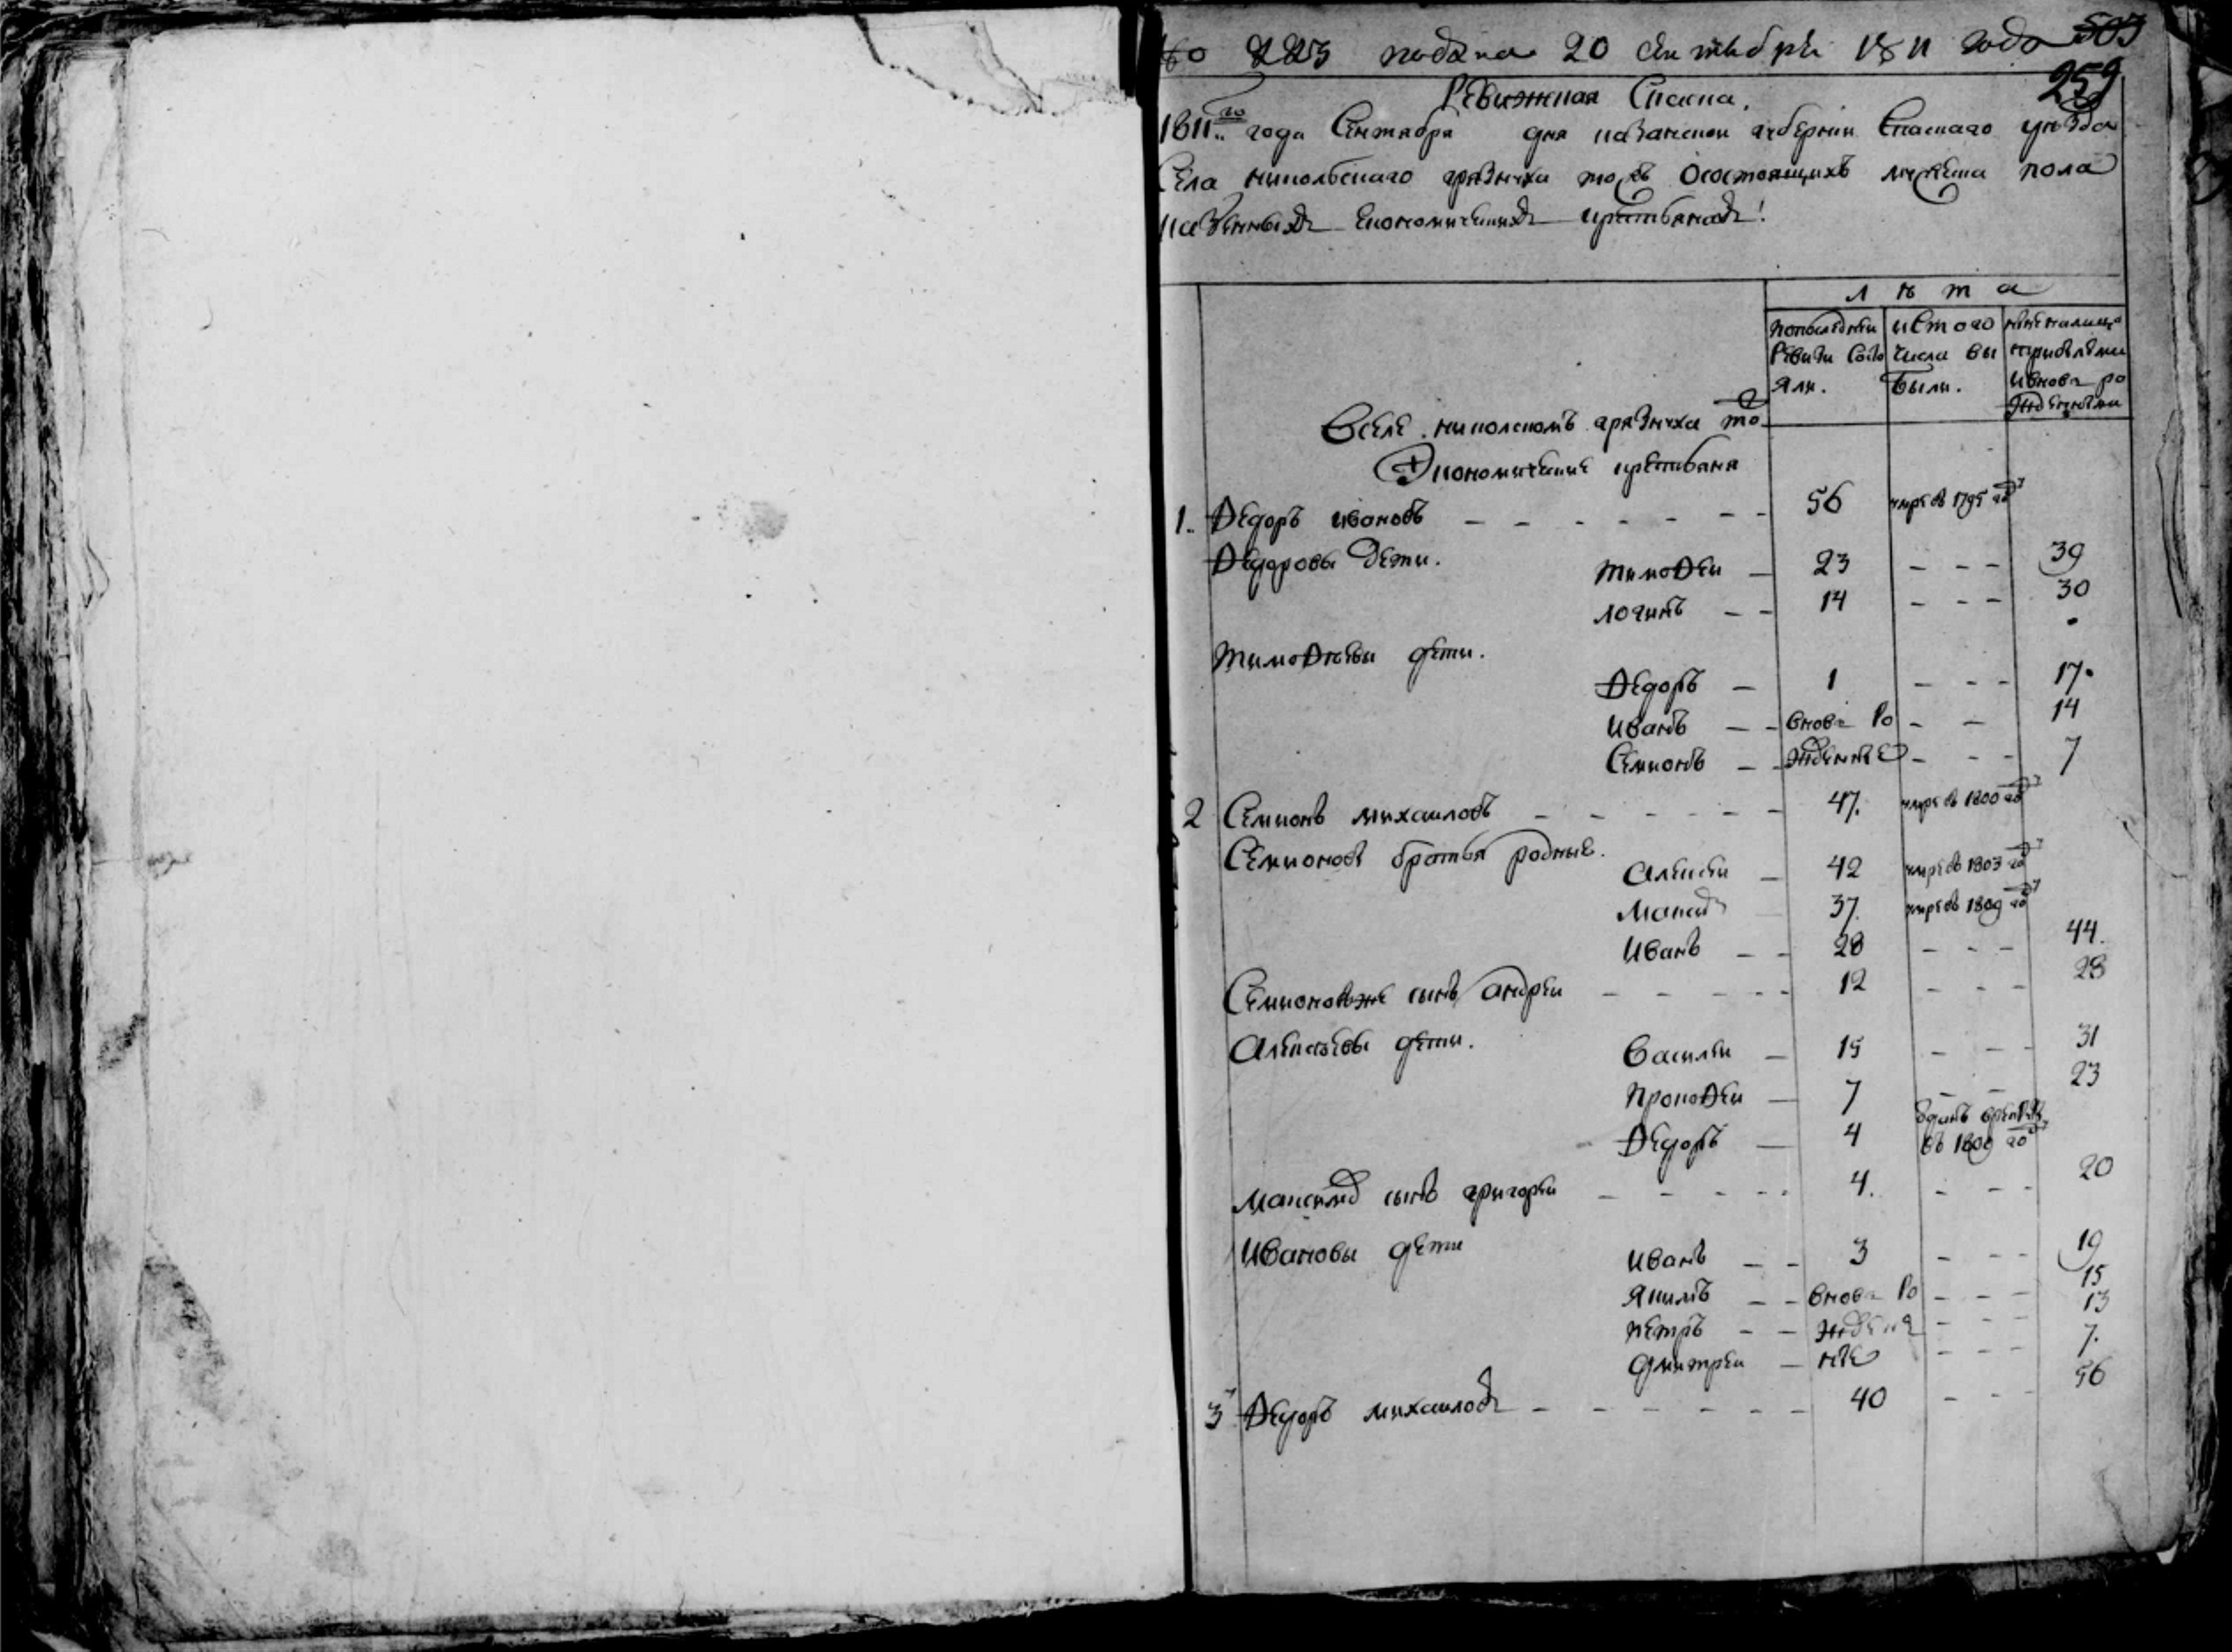 № 225 подана 20 сентебря 1811 года 503
259
Ревижская Скаска.
1811го года Сентября дня казанской губернии Спаскаго уезда
Села никольскаго грязнуха тожъ Осостоящихъ мужеска пола
казенныхъ Економическихъ крестьянахъ!
лѣта
попоследнеи Ревизи состояли.
истого числа выбыли.
ныне налицо сприбылыми ивновь рожденными
Вселе никольскомъ грязнуха тожъ
Экономические крестьяня
1. Ѳедоръ ивановъ – – – – – – 56 умре въ 1795 год
Ѳедоровы Дети.
тимоѲеи – 23 – – – 39
логинъ – – 14 – – – 30
тимоѲѣевы дети.
Ѳедоръ – 1 – – – 17.
иванъ – – вновь Ро – – 14
Семионъ – – жденные – – – 7
2 Семионъ михаиловъ – – – – – – 47. умре въ 1800 год
Семионовы братья родные.
Алексеи – 42 умре въ 1803 год
Макси 37. умре въ 1809 год
иванъ – – 28 – – – 44.
Семионовъ же сынъ андреи – – – – – 12 – – – 28
Алексѣевы дети.
василеи – 15 – – – 31
прокоѲеи – 7 – – 23
Ѳедоръ – 4 зданъ врекруты въ 1809 год
максимъ сынъ григореи – – – – – 4. – – – 20
ивановы дети
иванъ – – 3 – – – 19
якимъ – – вновь Ро – – – 15
петръ – – жденъ – – – 13
дмитреи – ные – – – 7.
3 Ѳедоръ михаиловъ – – – – – – 40 – – – 56